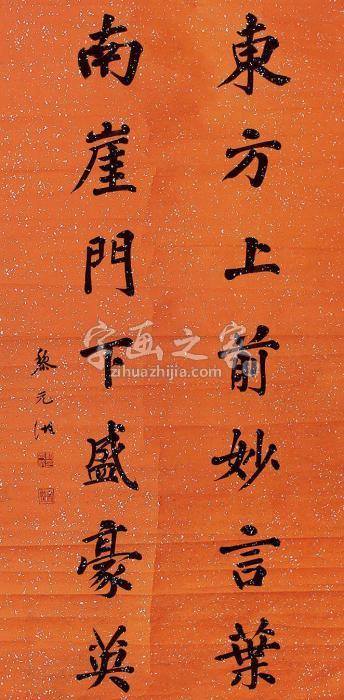 東方上前妙言葉
南崖門下盛豪英
黎元洪
字画之家
zihuazhijia.com